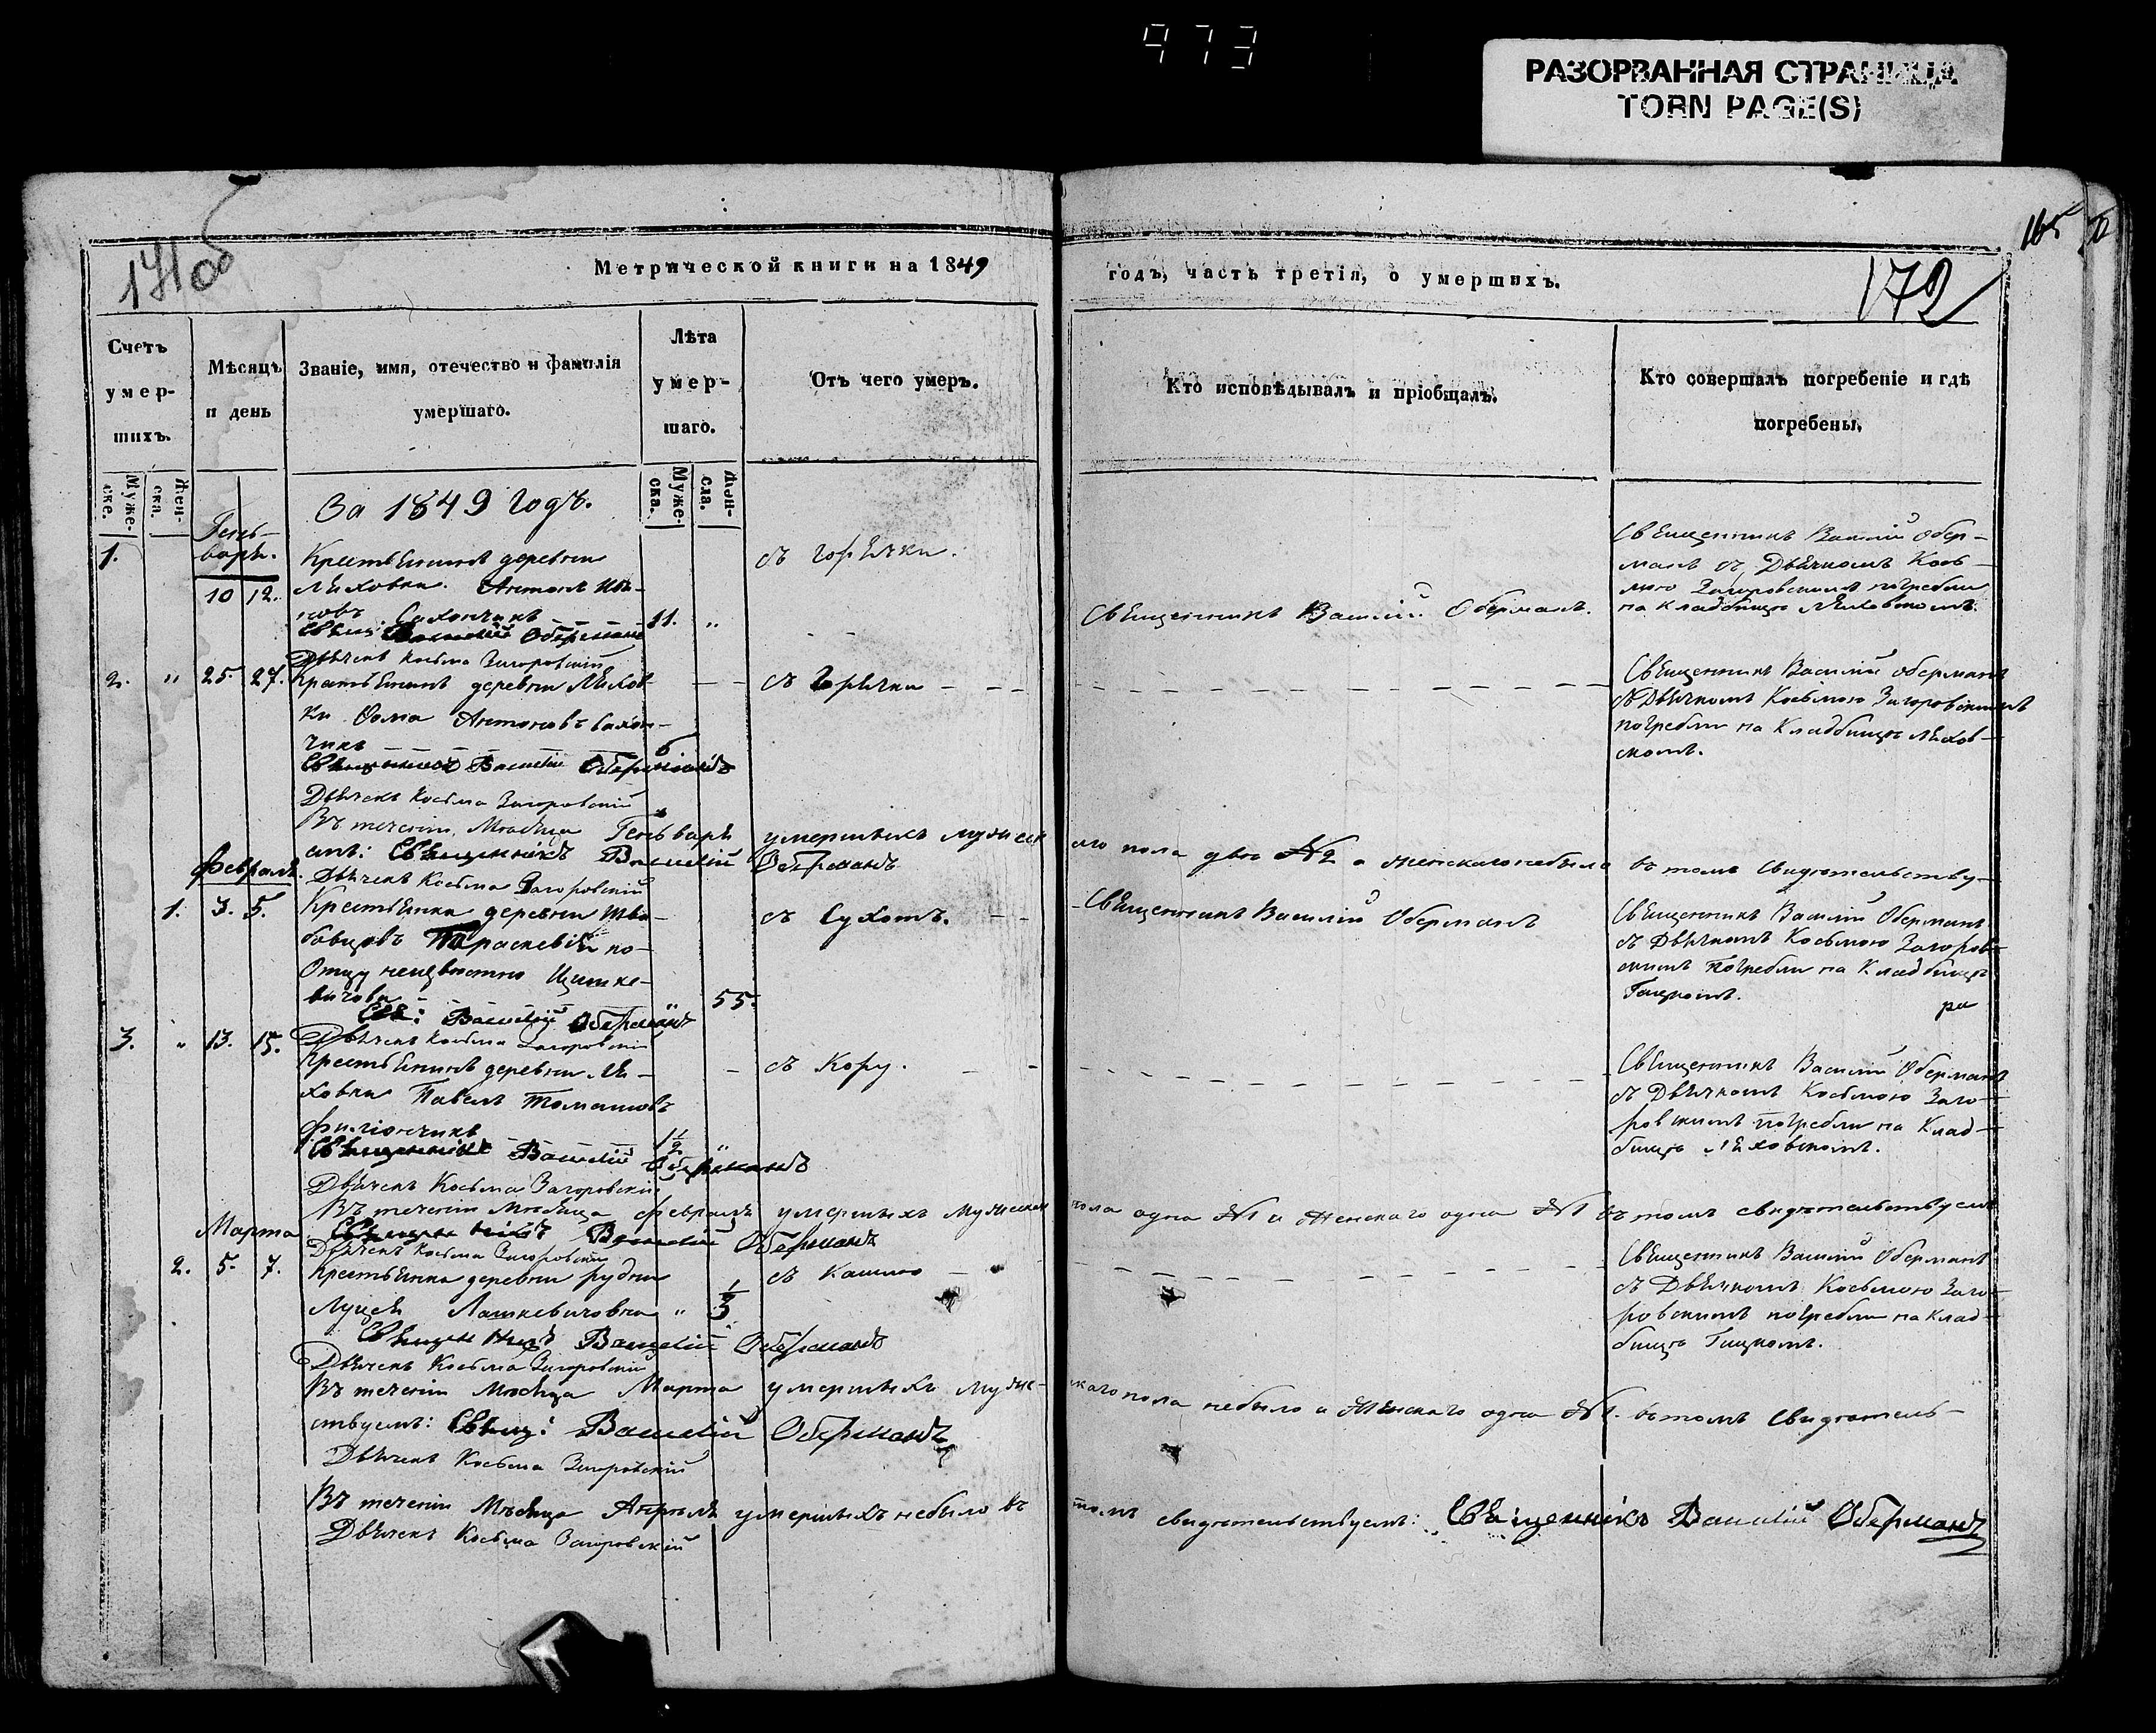 973
РАЗОРВАННАЯ СТРАНИЦА
TORN PAGE(S)
171об
165
172
Метрической книги на 1849
годъ, часть третія, о умершихъ.
Счетъ умер-шихъ.
Мѣсяцъ и день
Званіе, имя, отечество и фамилія умершаго.
Лѣта умер-шаго.
Отъ чего умеръ.
Кто исповѣдывалъ и пріобщалъ.
Кто совершалъ погребеніе и гдѣ погребены.
Муже-ске.
Жен-ска.
Муже-ска.
Жен-ска.
За 1849 годъ.
Гень-
варь.
1.
10 12.
Крестьянинъ деревни
Ляховки Антонъ Ива-
новъ Сахончикъ 11. "
Свящ: Василій Оберманъ
Дьячекъ Косьма Загоровскій
съ горячки.
Священникъ Василій Оберманъ.
Священникъ Василій Обер-
манъ съ Дьячкомъ Кось-
мою Загоровскимъ погребли
на кладбищѣ Ляховскомъ.
2. " 25. 27.
Крестьянинъ деревни Ляхов
ки Фома Антоновъ Сахон-
чикъ 6
Священникъ Василій Оберманъ
Дьячекъ Косьма Загоровскій
съ Горячки
Священникъ Василій Оберманъ
съ Дьячкомъ Косьмою Загоровскимъ
погребли на Кладбищѣ Ляхов-
скомъ.
Въ теченіи Мѣсяца Генваря умершихъ мужеск
аго пола два №2 а женскаго небыло въ томъ свидѣтельству-
емъ: Священникъ Василій Оберманъ
Дьячекъ Косьма Загоровскій
Февраль.
1. 3. 5.
Крестьянка деревни
Параскевія по
Отцу неизвѣстно
вичова " 55.
Свя: Василій Оберманъ
Дьячекъ Косьма Загоровскій
съ Сухотъ.
Священникъ Василій Оберманъ
Священникъ Василій Оберманъ
съ Дьячкомъ Косьмою Загоров-
скимъ Погребли на Кладбищѣ
Гицкомъ.
3. " 13. 15.
Крестьянинъ деревни Ля-
ховки Павелъ Томашовъ
Филіончикъ 1½ "
Священникъ Василій Оберманъ
Дьячекъ Косьма Загоровскій
съ Кору.
Священникъ Василій Оберманъ
съ Дьячкомъ Косьмою Заго-
ровскимъ погребли на Клад-
бищѣ Ляховскомъ.
Въ теченіи Мѣсяца Февраля умершихъ мужескаго
пола одна №1 и Женскаго одна №1 въ томъ свидѣтельствуемъ
Священникъ Василій Оберманъ
Дьячекъ Косьма Загоровскій
Марта
2. 5. 7.
Крестьянка деревни рудни
Луцея Лашкевичовна "
Священникъ Василій Оберманъ
Дьячекъ Косьма Загоровскій
съ Кашлю
Священникъ Василій Оберманъ
съ Дьячкомъ Косьмою Заго-
ровскимъ погребли на Клад-
бищѣ Гицкомъ.
Въ теченіи Мѣсяца Марта умершихъ муже-
скаго пола небыло а Женскаго одна №1. въ томъ Свидѣтель-
ствуемъ: Свящ: Василій Оберманъ
Дьячекъ Косьма Загоровскій
Въ теченіи Мѣсяца Апрѣля умершихъ небыло въ
томъ свидѣтельствуемъ: Священникъ Василій Оберманъ
Дьячекъ Косьма Загоровскій